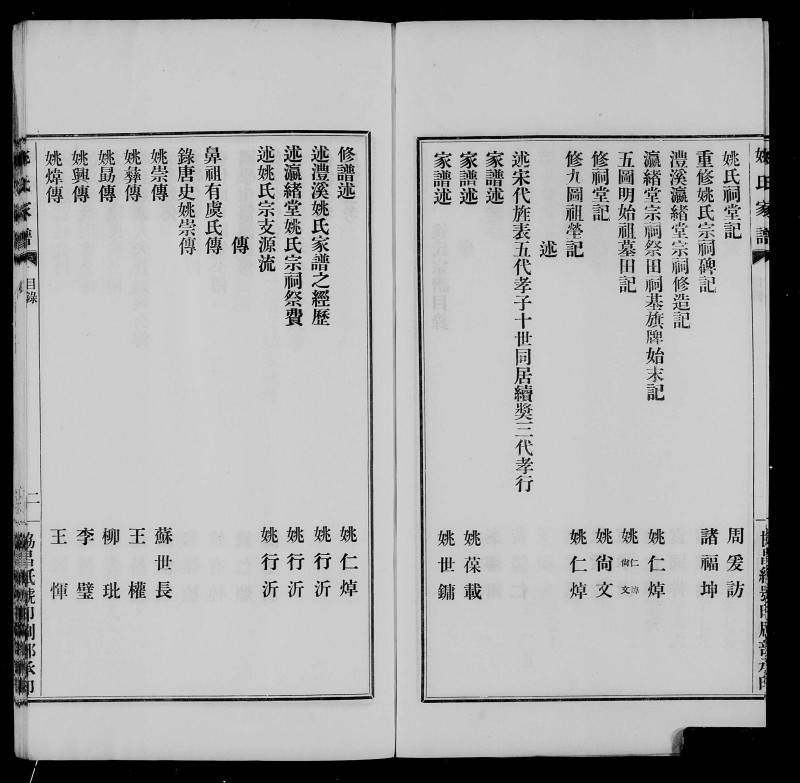 姚氏家譜
姚氏祠堂記　周爰訪
重修姚氏宗祠碑記　諸福坤
澧溪瀛緒堂宗祠修造記
瀛緒堂宗祠祭田祠基旗牌始末記　姚仁焯
五圖明始祖墓田記　姚仁焯尙文
修祠堂記　姚尙文
修九圖祖塋記　姚仁焯
述
述宋代旌表五代孝子十世同居續奬三代孝行
家譜述
家譜述　姚葆載
家譜述　姚世鏞
修譜述　姚仁焯
述澧溪姚氏家譜之經歷　姚行沂
述瀛緒堂姚氏宗祠祭費　姚行沂
述姚氏宗支源流　姚行沂
傳
鼻祖有虞氏傳
錄唐史姚崇傳
姚崇傳　蘇世長
姚彝傳　王權
姚勗傳　柳玭
姚興傳　李璧
姚煒傳　王惲
姚氏家譜　目錄　二　協昌紙號印刷部承印